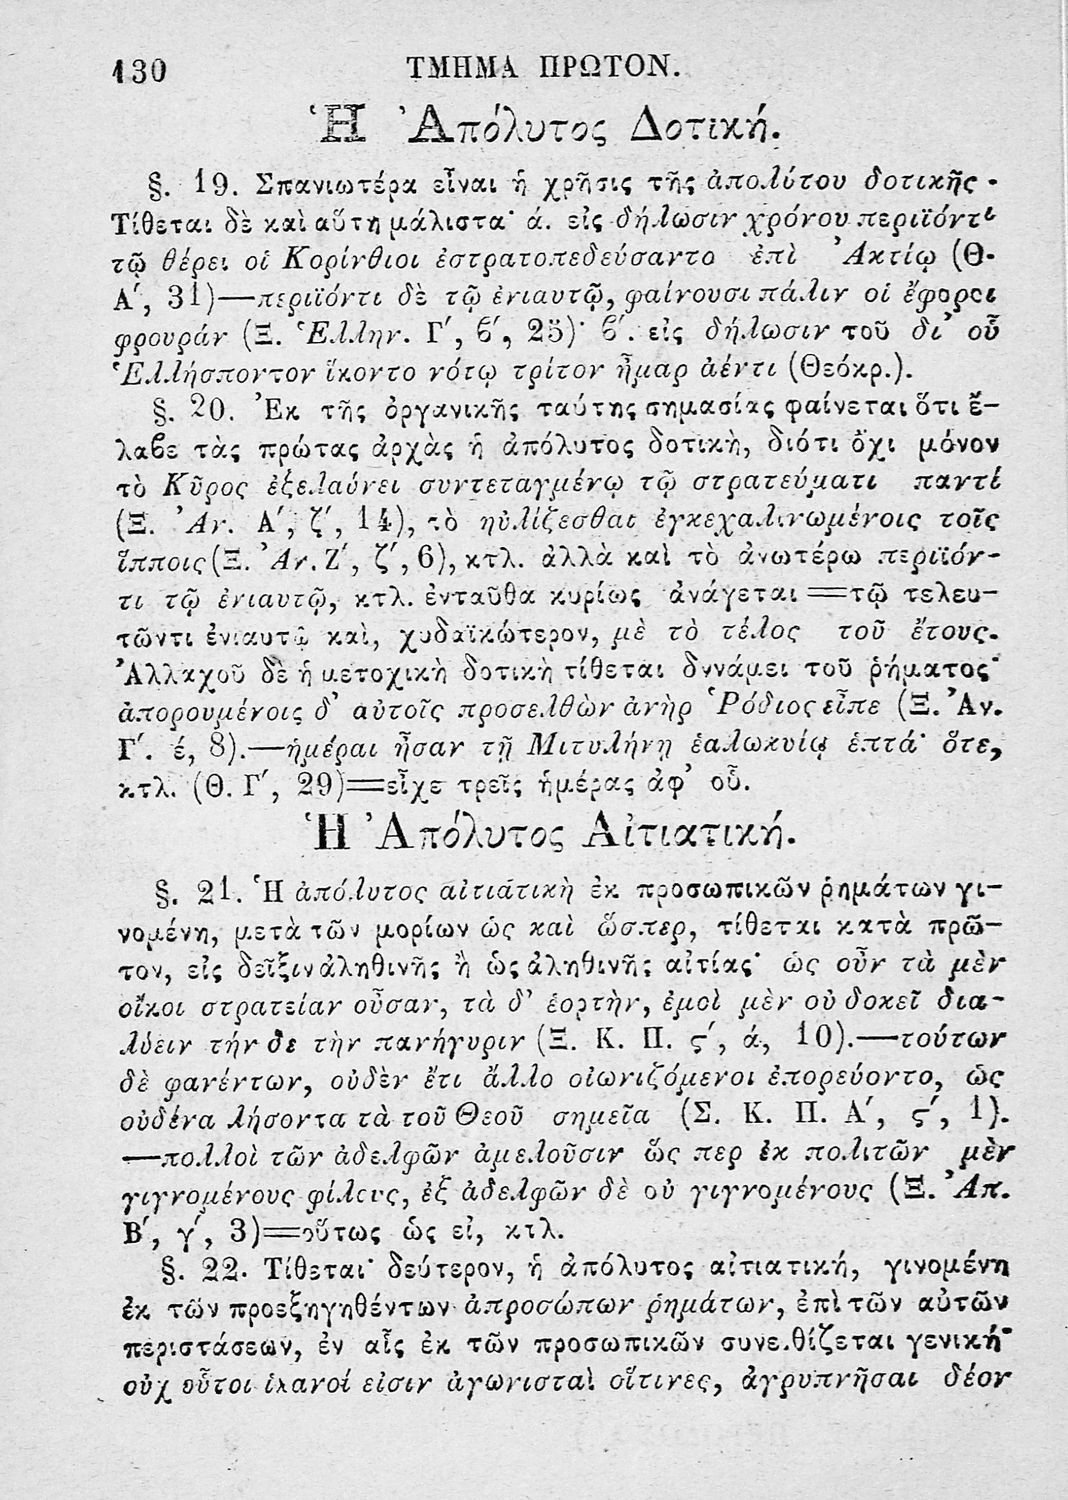 130 ΤΜΗΜΑ ΠΡΩΤΟΝ.
Ἡ Ἀπόλυτος Δοτική.
§. 19. Σπανιωτέρα εἶναι ἡ χρῆσις τῆς ἀπολύτου δοτικῆς·
Τίθεται δὲ καὶ αὕτη μάλιστα· ά. εἰς δήλωσιν χρόνου περιϊόντι
τῷ θέρει οἱ Κορίνθιοι ἐστρατοπεδεύσαντο ἐπὶ Ἀκτίῳ (Θ.
Α΄, 31)—περιϊόντι δὲ τῷ ἐνιαυτῷ, φαίνουσι πάλιν οἱ ἔφοροι
φρουράν (Ξ. Ἑλλην. Γ΄, ϐ΄, 25)· ϐ΄. εἰς δήλωσιν τοῦ δι’ οὗ
Ἑλλήσποντον ἵκοντο νότῳ τρίτον ἦμαρ ἀέντι (Θεόκρ.).
§. 20. Ἐκ τῆς ὀργανικῆς ταύτης σημασίας φαίνεται ὅτι ἔ–
λαϐε τὰς πρώτας ἀρχὰς ἡ ἀπόλυτος δοτικὴ, διότι ὄχι μόνον
τὸ Κῦρος ἐξελαύνει συντεταγμένῳ τῷ στρατεύματι παντί
(Ξ. Ἀν. Α΄, ζ΄, 14), τὸ ηὐλίζεσθαι ἐγκεχαλινωμένοις τοῖς
ἵπποις (Ξ. Ἀν. Ζ΄, ζ΄, 6), κτλ. ἀλλὰ καὶ τὸ ἀνωτέρω περιϊόν–
τι τῷ ἐνιαυτῷ, κτλ. ἐνταῦθα κυρίως ἀνάγεται=τῷ τελευ–
τῶντι ἐνιαυτῷ καὶ, χυδαϊκώτερον, μὲ τὸ τέλος τοῦ ἔτους.
Ἀλλαχοῦ δὲ ἡ μετοχικὴ δοτικὴ τίθεται δυνάμει τοῦ ῥήματος·
ἀπορουμένοις δ’ αὐτοῖς προσελθὼν ἀνὴρ Ῥόδιος εἶπε (Ξ. Ἀν.
Γ΄. έ, 8).—ἡμέραι ἦσαν τῇ Μιτυλήνῃ ἑαλωκυίᾳ ἑπτά· ὅτε,
κτλ. (Θ. Γ΄, 29)=εἶχε τρεῖς ἡμέρας ἀφ’ οὗ.
Ἡ Ἀπόλυτος Αἰτιατική.
§. 21. Ἡ ἀπόλυτος αἰτιατικὴ ἐκ προσωπικῶν ῥημάτων γι–
νομένη, μετὰ τῶν μορίων ὡς καὶ ὥσπερ, τίθεται κατὰ πρῶ–
τον, εἰς δεῖξιν ἀληθινῆς ἢ ὡς ἀληθινῆς αἰτίας· ὡς οὖν τὰ μὲν
οἴκοι στρατείαν οὖσαν, τὰ δ’ ἑορτὴν, ἐμοὶ μὲν οὐ δοκεῖ δια–
λύειν τήν δε τὴν πανήγυριν (Ξ. Κ. Π. ς΄, ά, 10).—τούτων
δὲ φανέντων, οὐδὲν ἔτι ἄλλο οἰωνιζόμενοι ἐπορεύοντο, ὡς
οὐδένα λήσοντα τὰ τοῦ Θεοῦ σημεῖα (Σ. Κ. Π. Α΄, ς΄, 1).
—πολλοὶ τῶν ἀδελφῶν ἀμελοῦσιν ὥς περ ἐκ πολιτῶν μὲν
γιγνομένους φίλους, ἐξ ἀδελφῶν δὲ οὐ γιγνομένους (Ξ. Ἀπ.
Β΄, γ΄, 3)=οὕτως ὡς εἰ, κτλ.
§. 22. Τίθεται· δεύτερον, ἡ ἀπόλυτος αἰτιατική, γινομένη
ἐκ τῶν προεξηγηθέντων ἀπροσώπων ῥημάτων, ἐπὶ τῶν αὐτῶν
περιστάσεων, ἐν αἷς ἐκ τῶν προσωπικῶν συνειθίζεται γενική·
οὐχ οὗτοι ἱκανοί εἰσιν ἀγωνισταὶ οἵτινες, ἀγρυπνῆσαι δέον